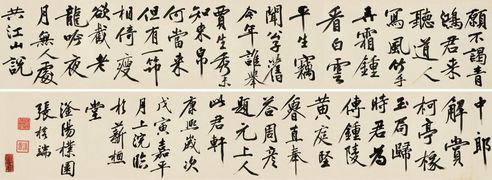 聽道人
寫風竹手
弄霜鐘
看白雲
平生竊
聞公子舊
今年誰舉
賈生秀未
知束帛
何當來
但有一節
相倚瘦
欲截老
龍吟夜
月無人處
共江山說
中郎
解賞
柯亭椽
玉局歸
時君為
傳鍾陵
黃庭堅
魯直奉
答周彥
題元上人
此君軒
康熙歲次
戊寅嘉平
月上浣臨
於薪槱
堂
滏陽樸園
張榕端